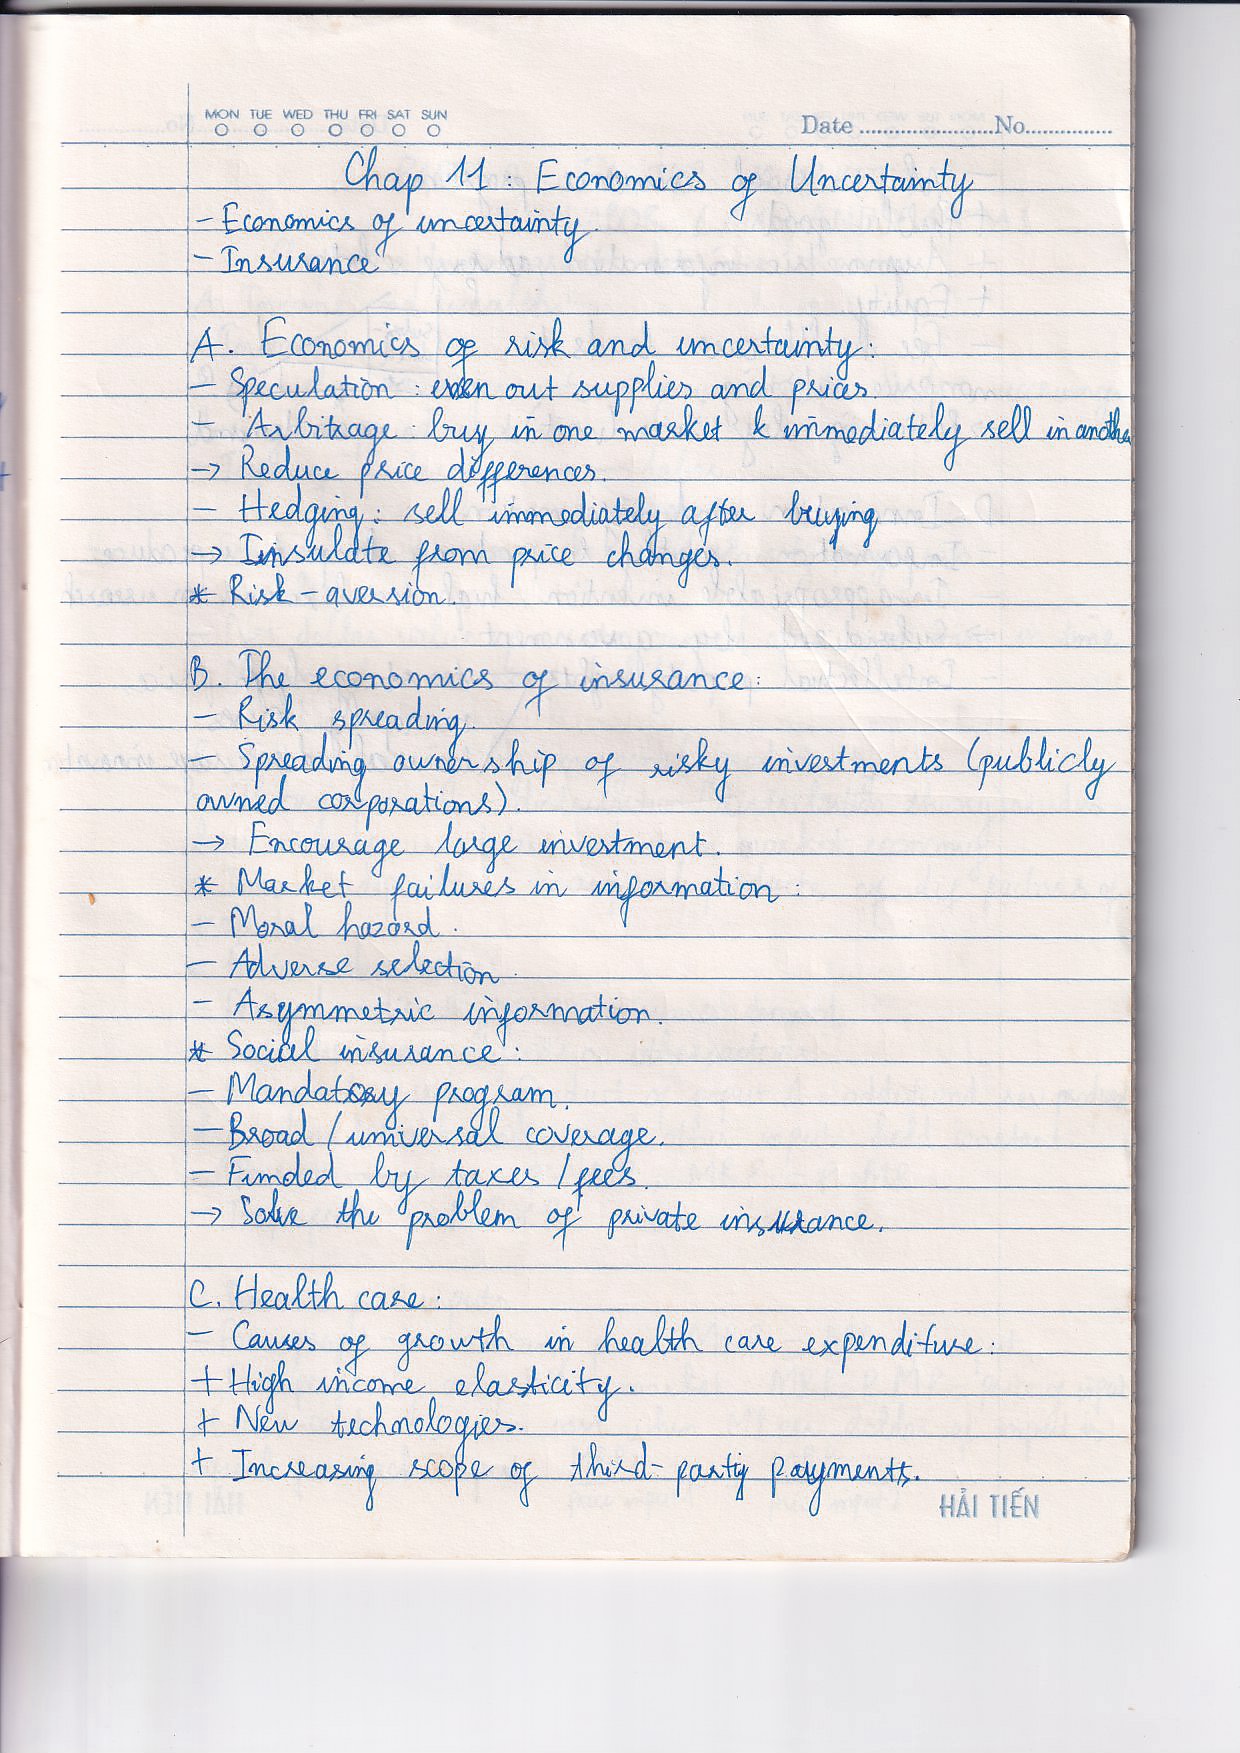 MON TUE WED THU FRI SAT SUN
Date ........................No...............
Chap 11 : Economics of Uncertainty
- Economics of uncertainty.
- Insurance
A. Economics of risk and uncertainty :
- Speculation : even out supplies and prices.
- Arbitrage : buy in one market & immediately sell in another
→ Reduce price differences.
- Hedging : sell immediately after buying
→ Insulate from price changes.
* Risk-aversion.
B. The economics of insurance :
- Risk spreading.
- Spreading ownership of risky investments (publicly
owned corporations).
→ Encourage large investment.
* Market failures in information :
- Moral hazard.
- Adverse selection.
- Asymmetric information.
* Social insurance :
- Mandatory program.
- Broad / universal coverage.
- Funded by taxes / fees.
→ Solve the problem of private insurance.
C. Health care :
- Causes of growth in health care expenditure :
+ High income elasticity.
+ New technologies.
+ Increasing scope of third-party payments.
HẢI TIẾN